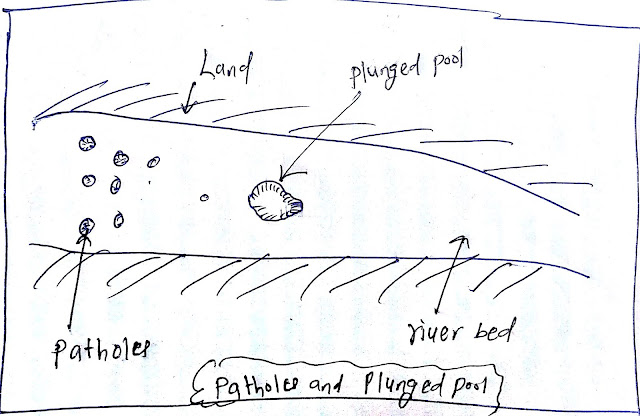 Land
plunged pool
Patholes
river bed
Patholes and Plunged pool